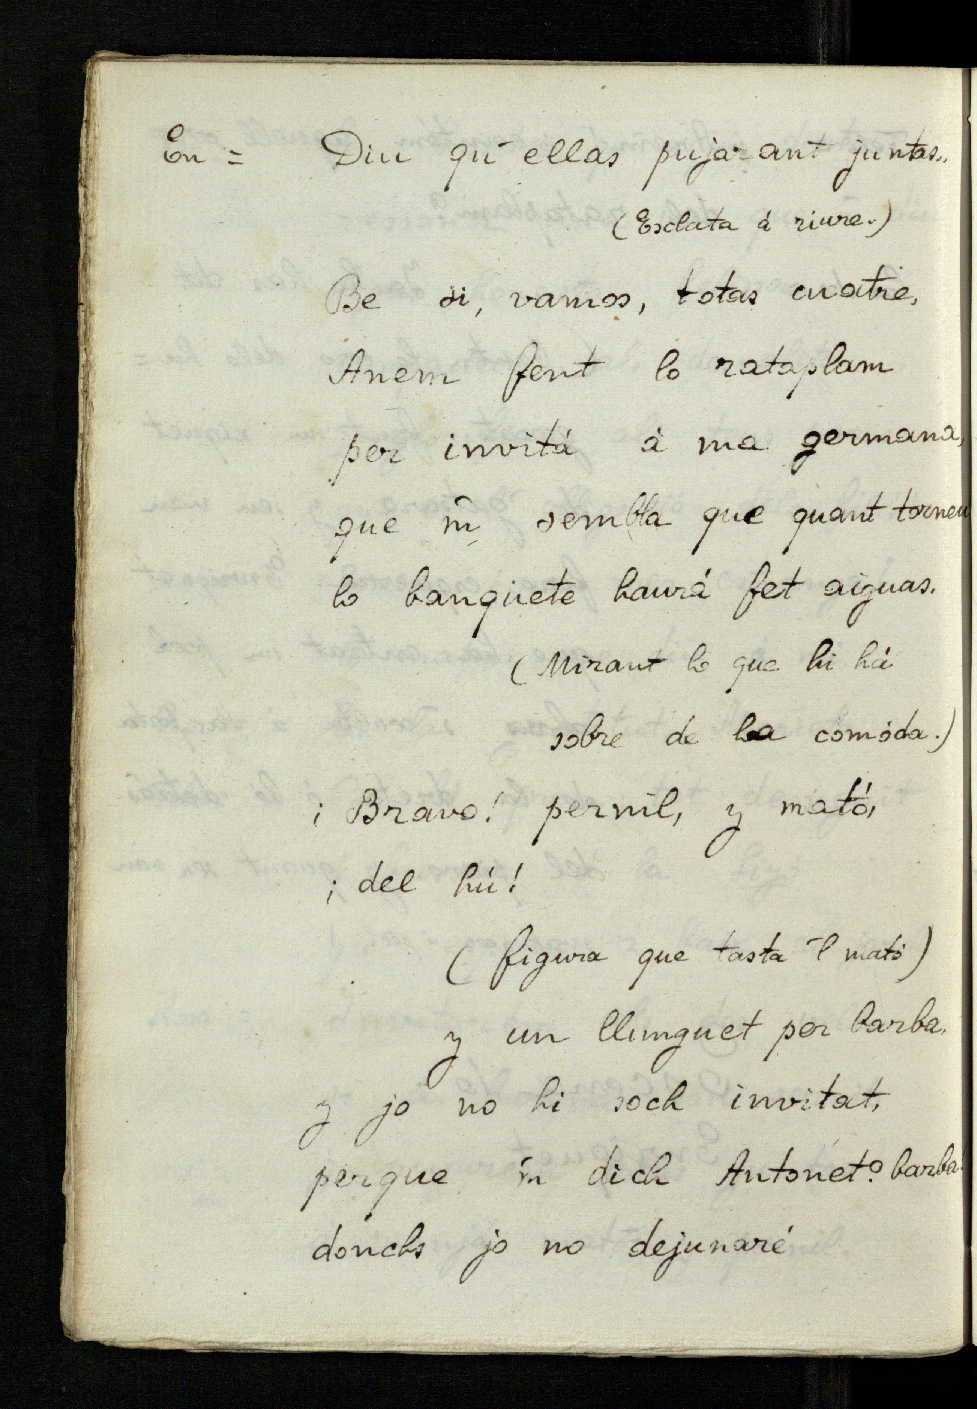 En = Diu qu' ellas pujarant juntas..
(Esclata á riure.)
Be si, vamos, totas cuatre,
Anem fent lo rataplam
per invitá á ma germana,
que m̄ sembla que quant torneu
lo banquete haurá fet aiguas.
(Mirant lo que hi há
sobre de la cómoda.)
¡ Bravo! pernil, y mató,
¡ del hú!
( figura que tasta 'l mató)
y un llunguet per barba.
y jo no hi soch invitat,
perque 'm dich Antonet? barba.
donchs jo no dejunaré